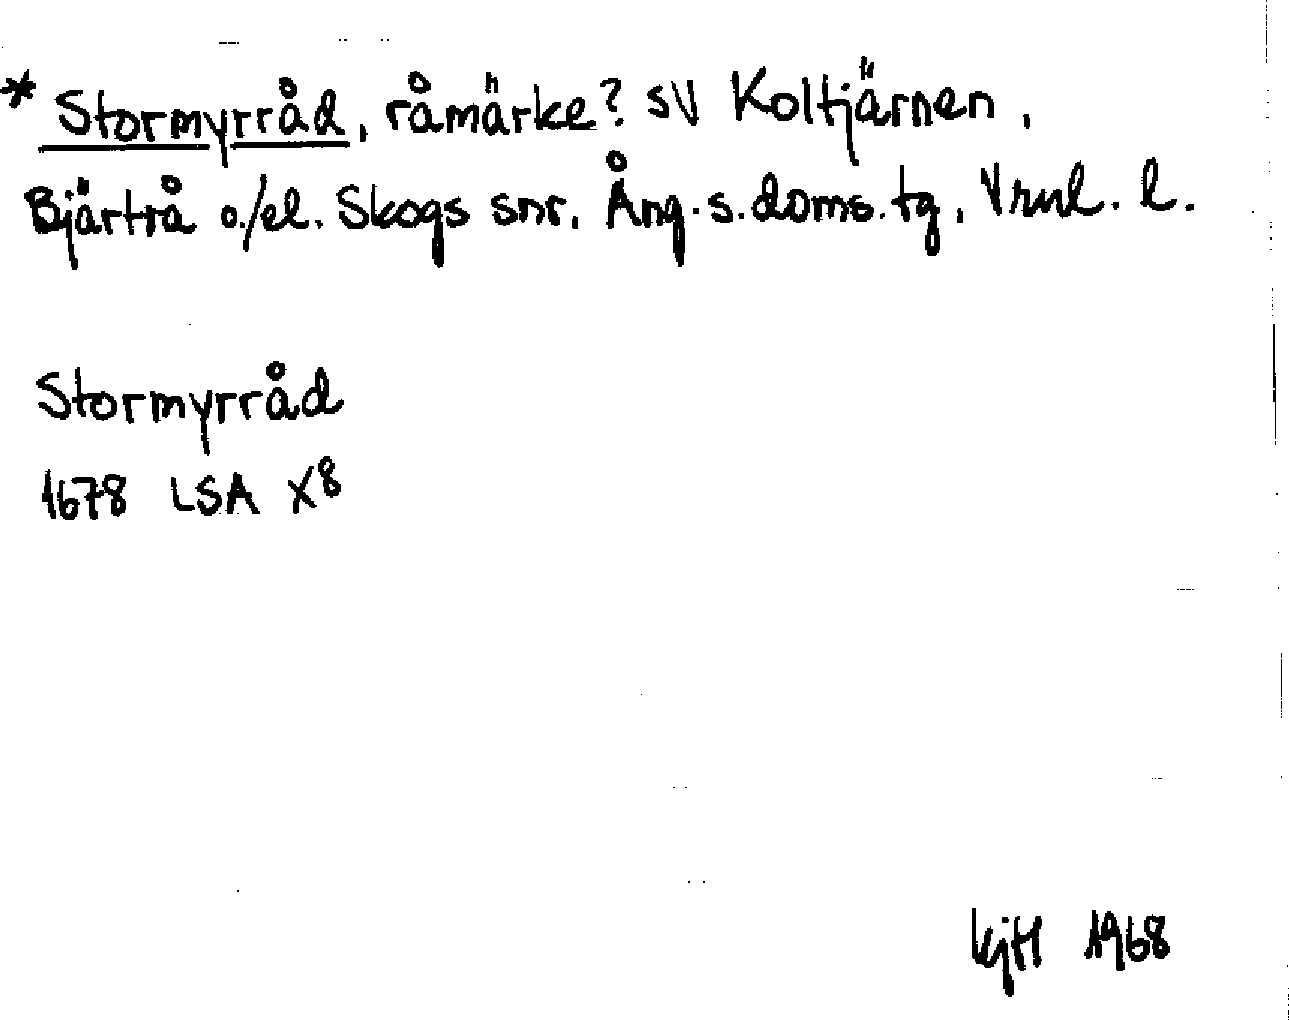 * Stormyrråd, råmärke? SV Koltjärnen,
Bjärtrå o./el. Skogs snr, Ång.s.doms.tg, Vrnl. l.
Stormyrråd
1678 LSA X8
KjH 1968